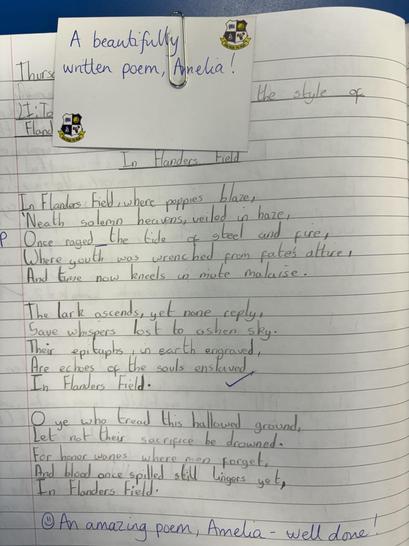 A beautifully
written poem, Amelia!
Thurs
the style of
Fland
In Flanders Field
In Flanders Field, where poppies blaze,
'Neath solemn heavens, veiled in haze,
P Once raged the tide of steel and fire,
Where youth was wrenched from fate's attire,
And time now kneels in mute malaise.
The lark ascends, yet none reply,
Save whispers lost to ashen sky.
Their epitaphs, in earth engraved,
Are echoes of the souls enslaved
In Flanders Field.
O ye who tread this hallowed ground,
Let not their sacrifice be drowned.
For honor wanes where men forget,
And blood once spilled still lingers yet,
In Flanders Field.
An amazing poem, Amelia - well done!